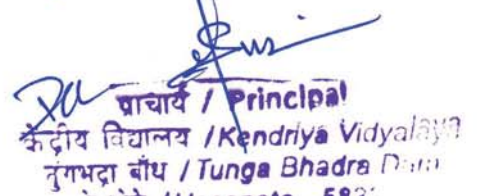 प्राचार्य / Principal
केंद्रीय विद्यालय / Kendriya Vidyalaya
तुंगभद्रा बाँध / Tunga Bhadra Dam